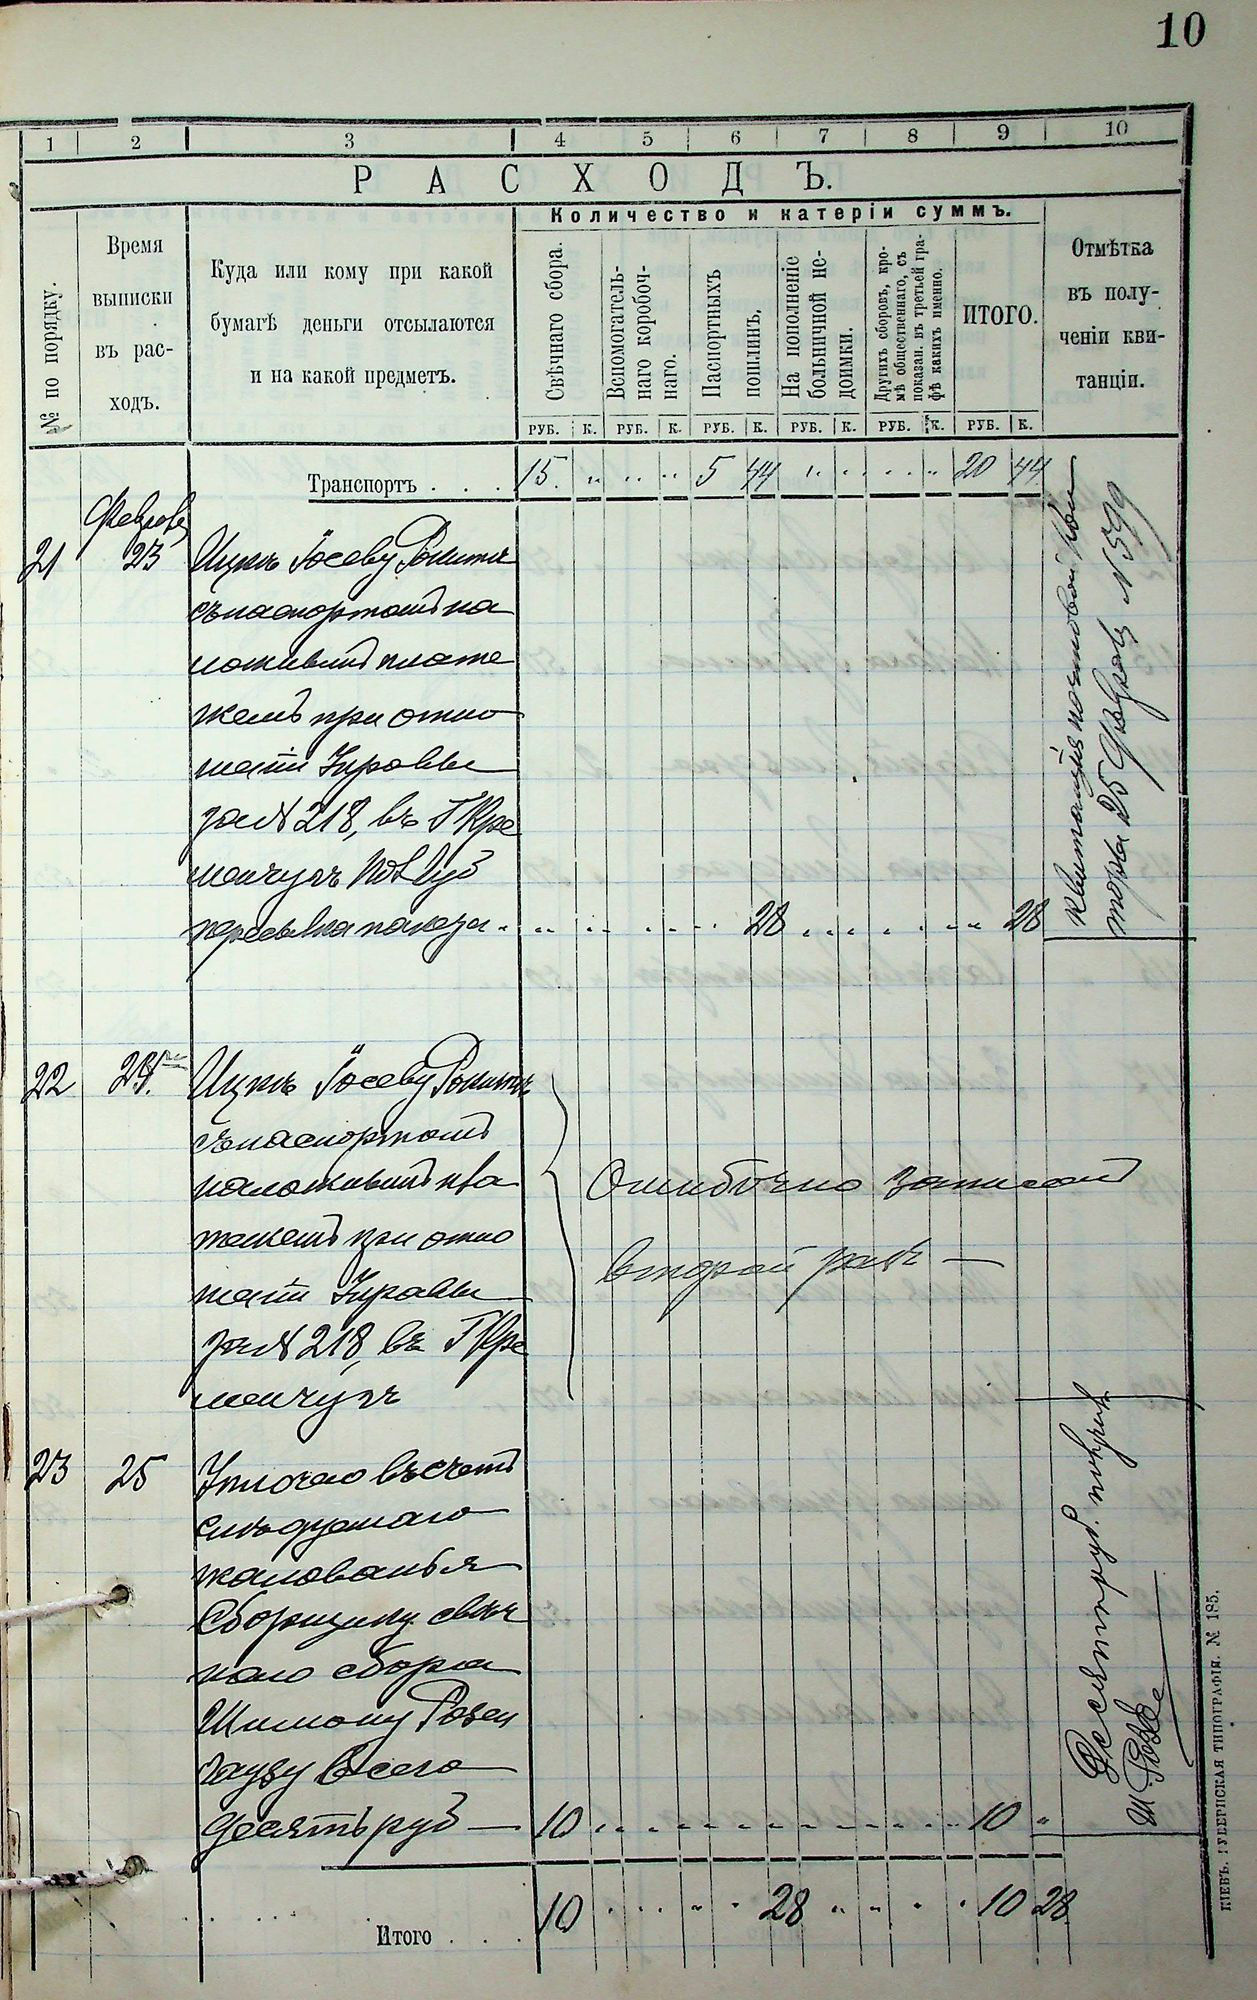 10
1 2 3 4 5 6 7 8 9 10
РАСХОДЪ.
№ по порядку.
Время
выписки
въ рас-
ходъ.
Куда или кому при какой
бумагѣ деньги отсылаются
и на какой предметъ.
Количество и катеріи суммъ.
Свѣчнаго сбора.
Вспомогатель-
наго коробоч-
наго.
Паспортныхъ
пошлинъ.
На пополненіе
больничной не-
доимки.
Другихъ сборовъ, кро-
мѣ общественнаго, съ
показан. въ третьей гра-
фѣ какихъ именно.
ИТОГО.
Отмѣтка
въ полу-
ченіи кви-
танціи.
РУБ. К. РУБ. К. РУБ. К. РУБ. К. РУБ. К. РУБ. К.
Транспортъ . . . 15 „ „ „ 5 44 „ „ „ 20 44
21 23 Ицкъ Іосеву
съ паспортомъ на
ложенымъ плате
жемъ при отно
шеніи Управы
за № 218, въ Г Кре
менчугъ
28 28
Квитанція почтовой Кон
торы 25 Февраля № 599
22 24 Ицкъ Іосеву
съ паспортомъ
наложенымъ пла
тежемъ при отно
шеніи Управы
за № 218, въ Г Кре
менчугъ
Ошибочно записанъ
второй разъ —
23 25 Уплочено въ счетъ
следуемаго
жалованья
Сборщику свеч
наго сбора
Шимону Розен
гаузу всего
десять руб — 10 10 „
Десять руб. получилъ
Ш. Розе
Итого . . . 10 28 10 28
КІЕВЪ. ГУБЕРНСКАЯ ТИПОГРАФІЯ. № 185.